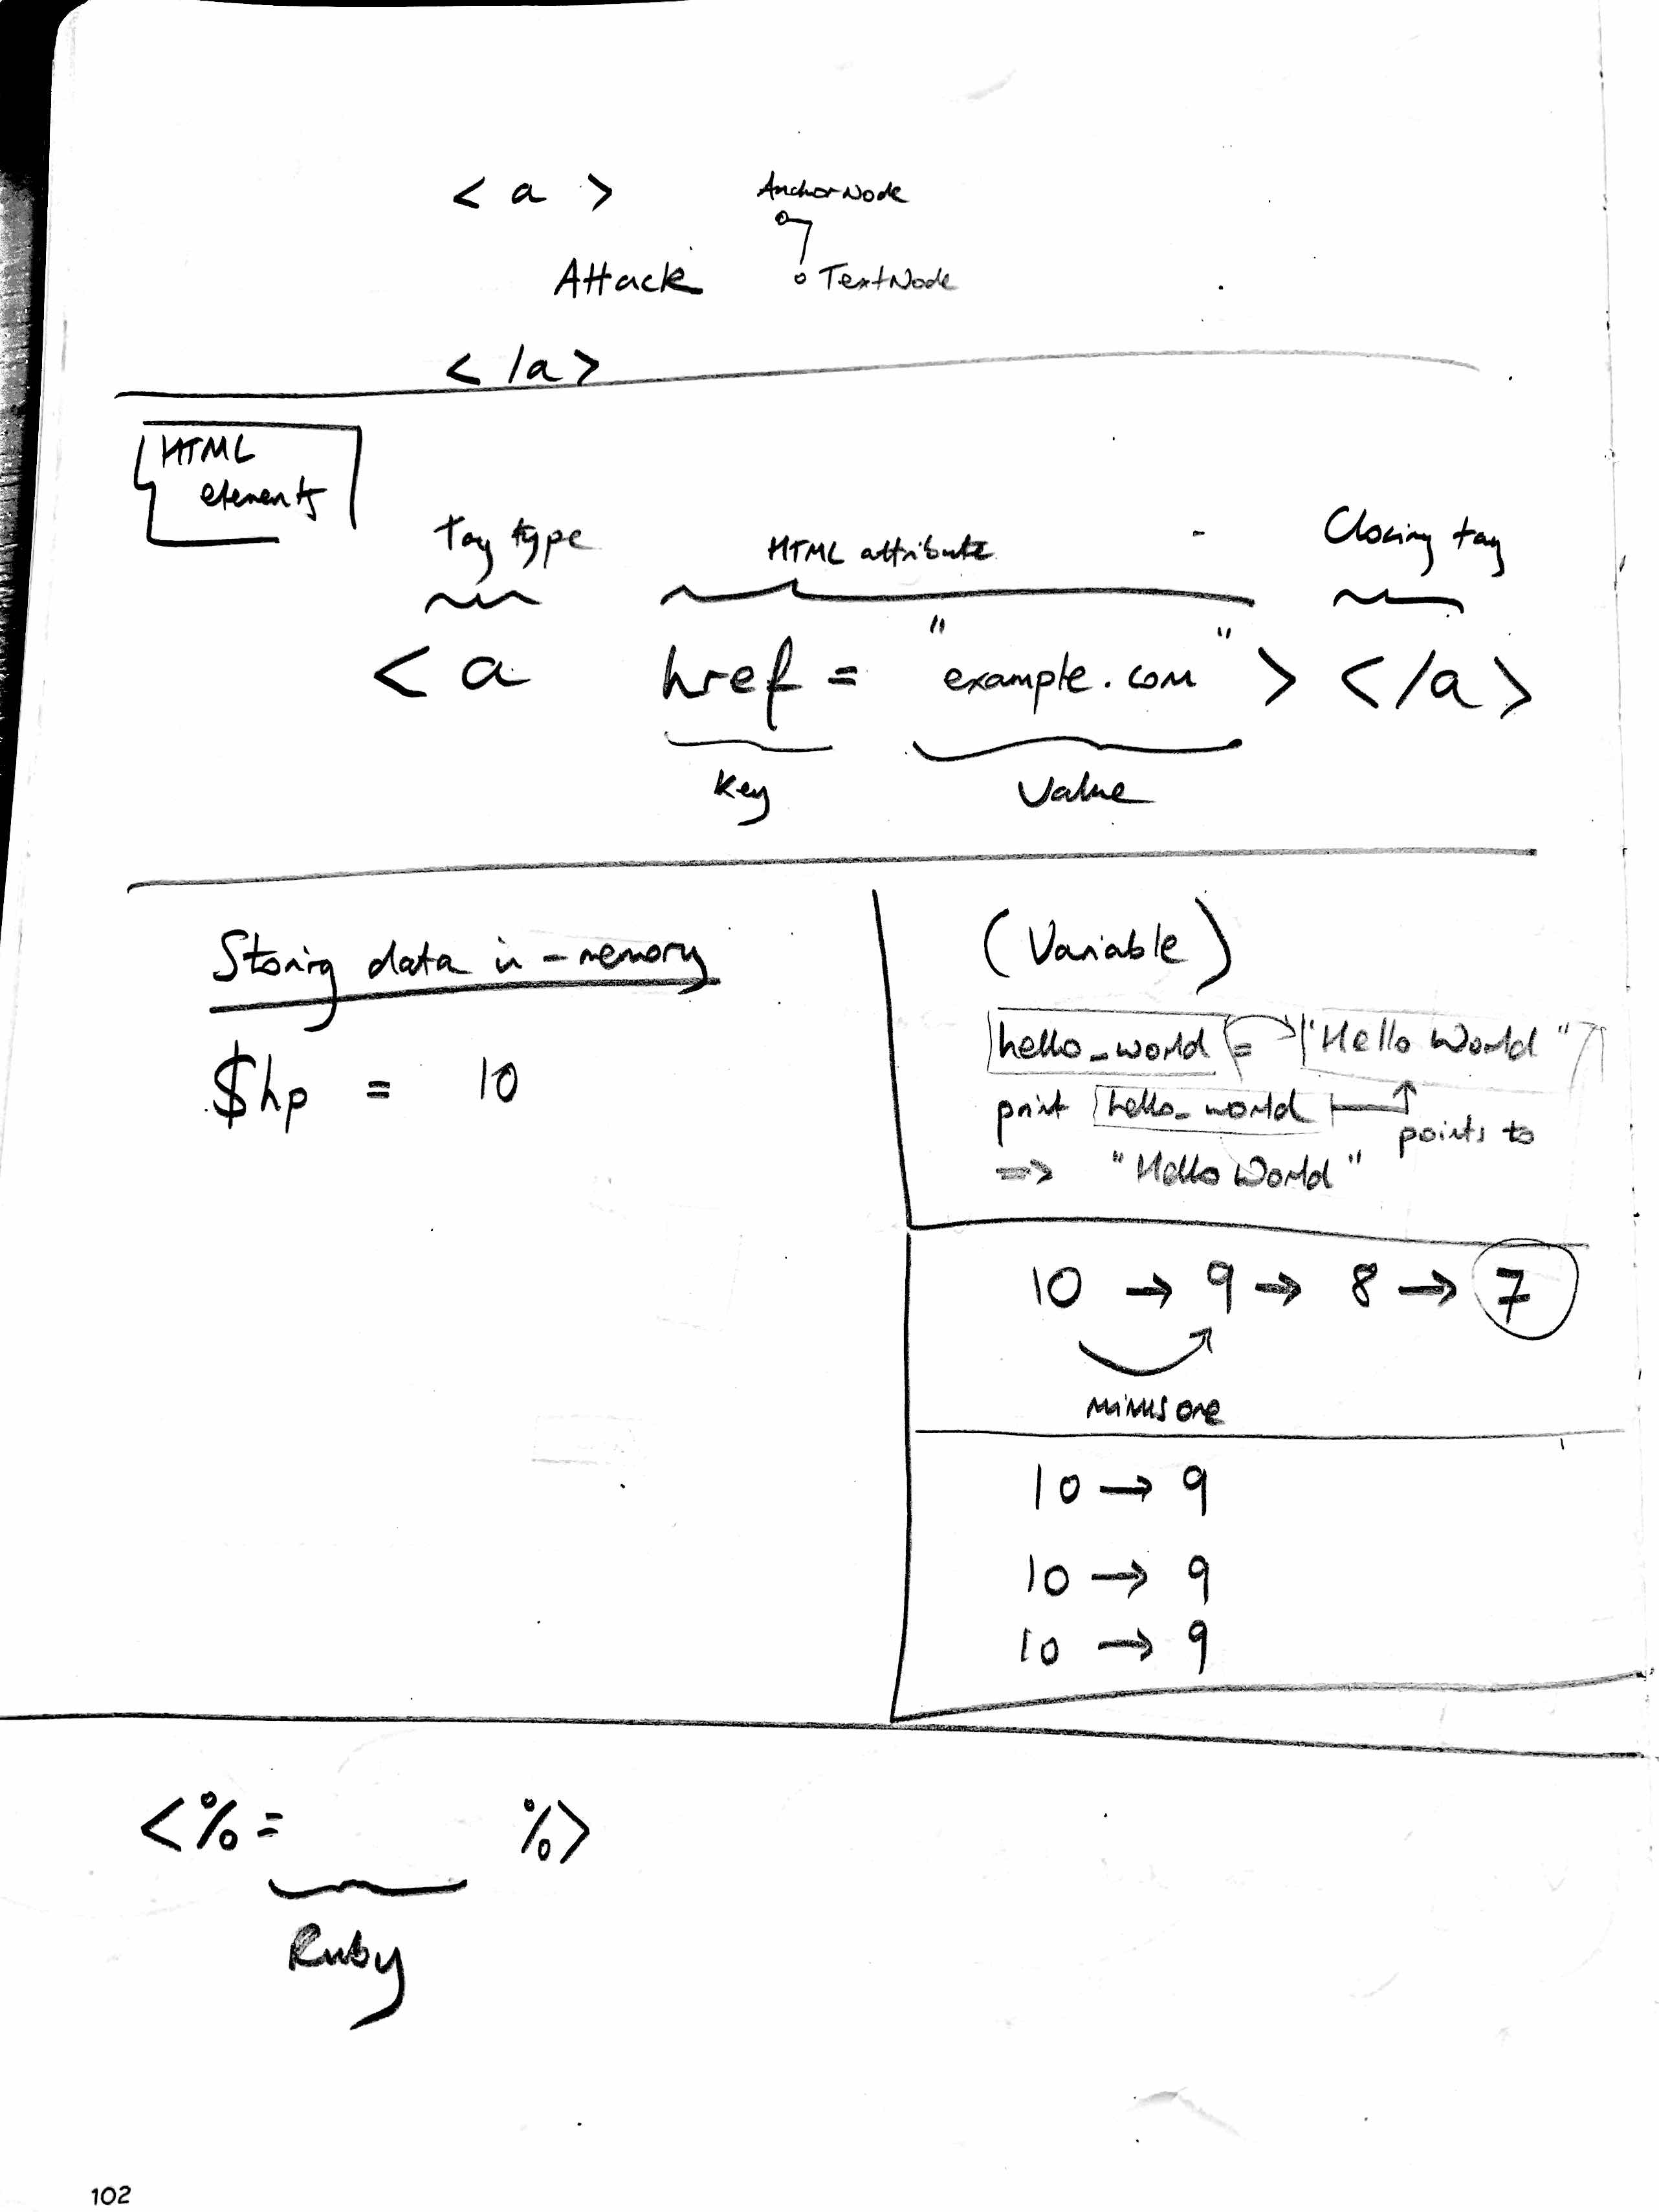 <a> AnchorNode
Attack TextNode
</a>
HTML
elements
Tag type HTML attribute Closing tag
<a href = "example.com"> </a>
Key Value
Storing data in-memory
$hp = 10
(Variable)
hello_world = "Hello World"
print hello_world points to
=> "Hello World"
10 → 9 → 8 → 7
minus one
10 → 9
10 → 9
10 → 9
<%= %>
Ruby
102